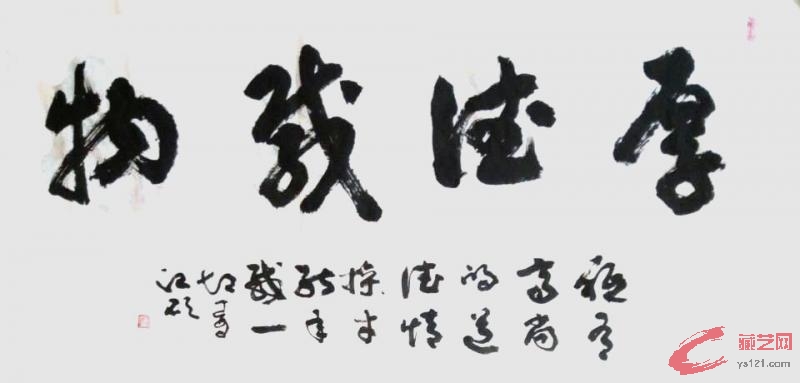 厚德载物
唯有
高尚
的道
德情
操才
能承
载一
切
藏艺网
ys121.com